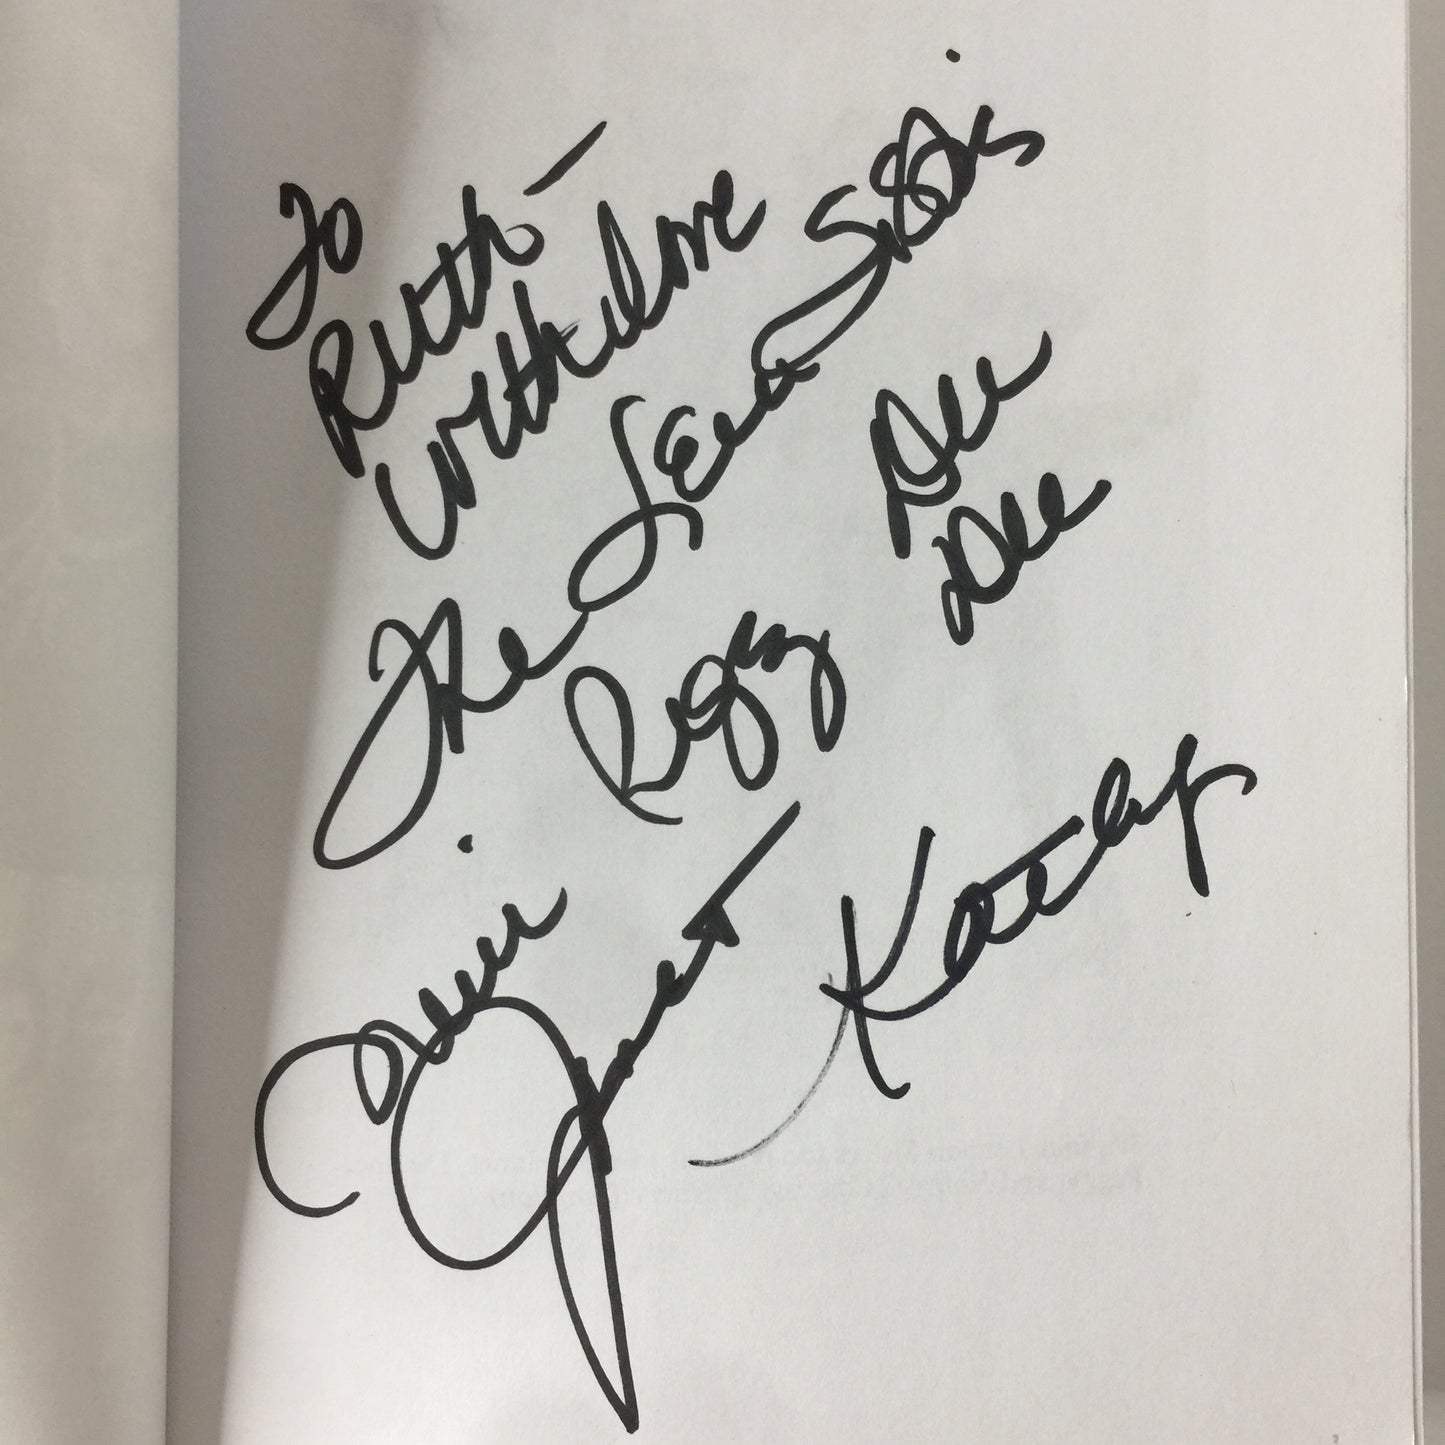 To
Ruth -
With love
The Lennon Sisters
Dee
Dee
Peggy
Kathy
Mimi
Janet